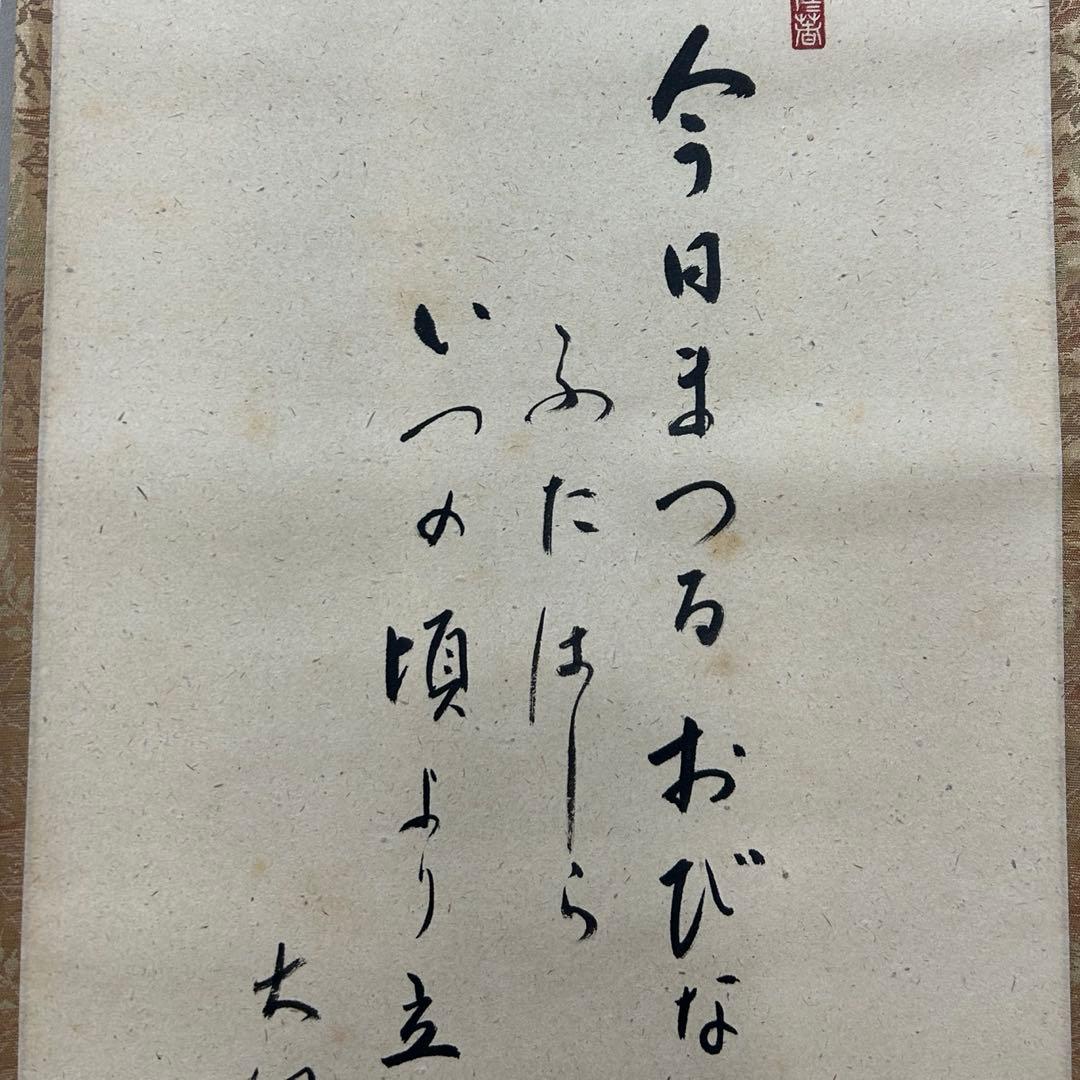 今日まつるおびな
ふたはしら
いつの頃より立
大